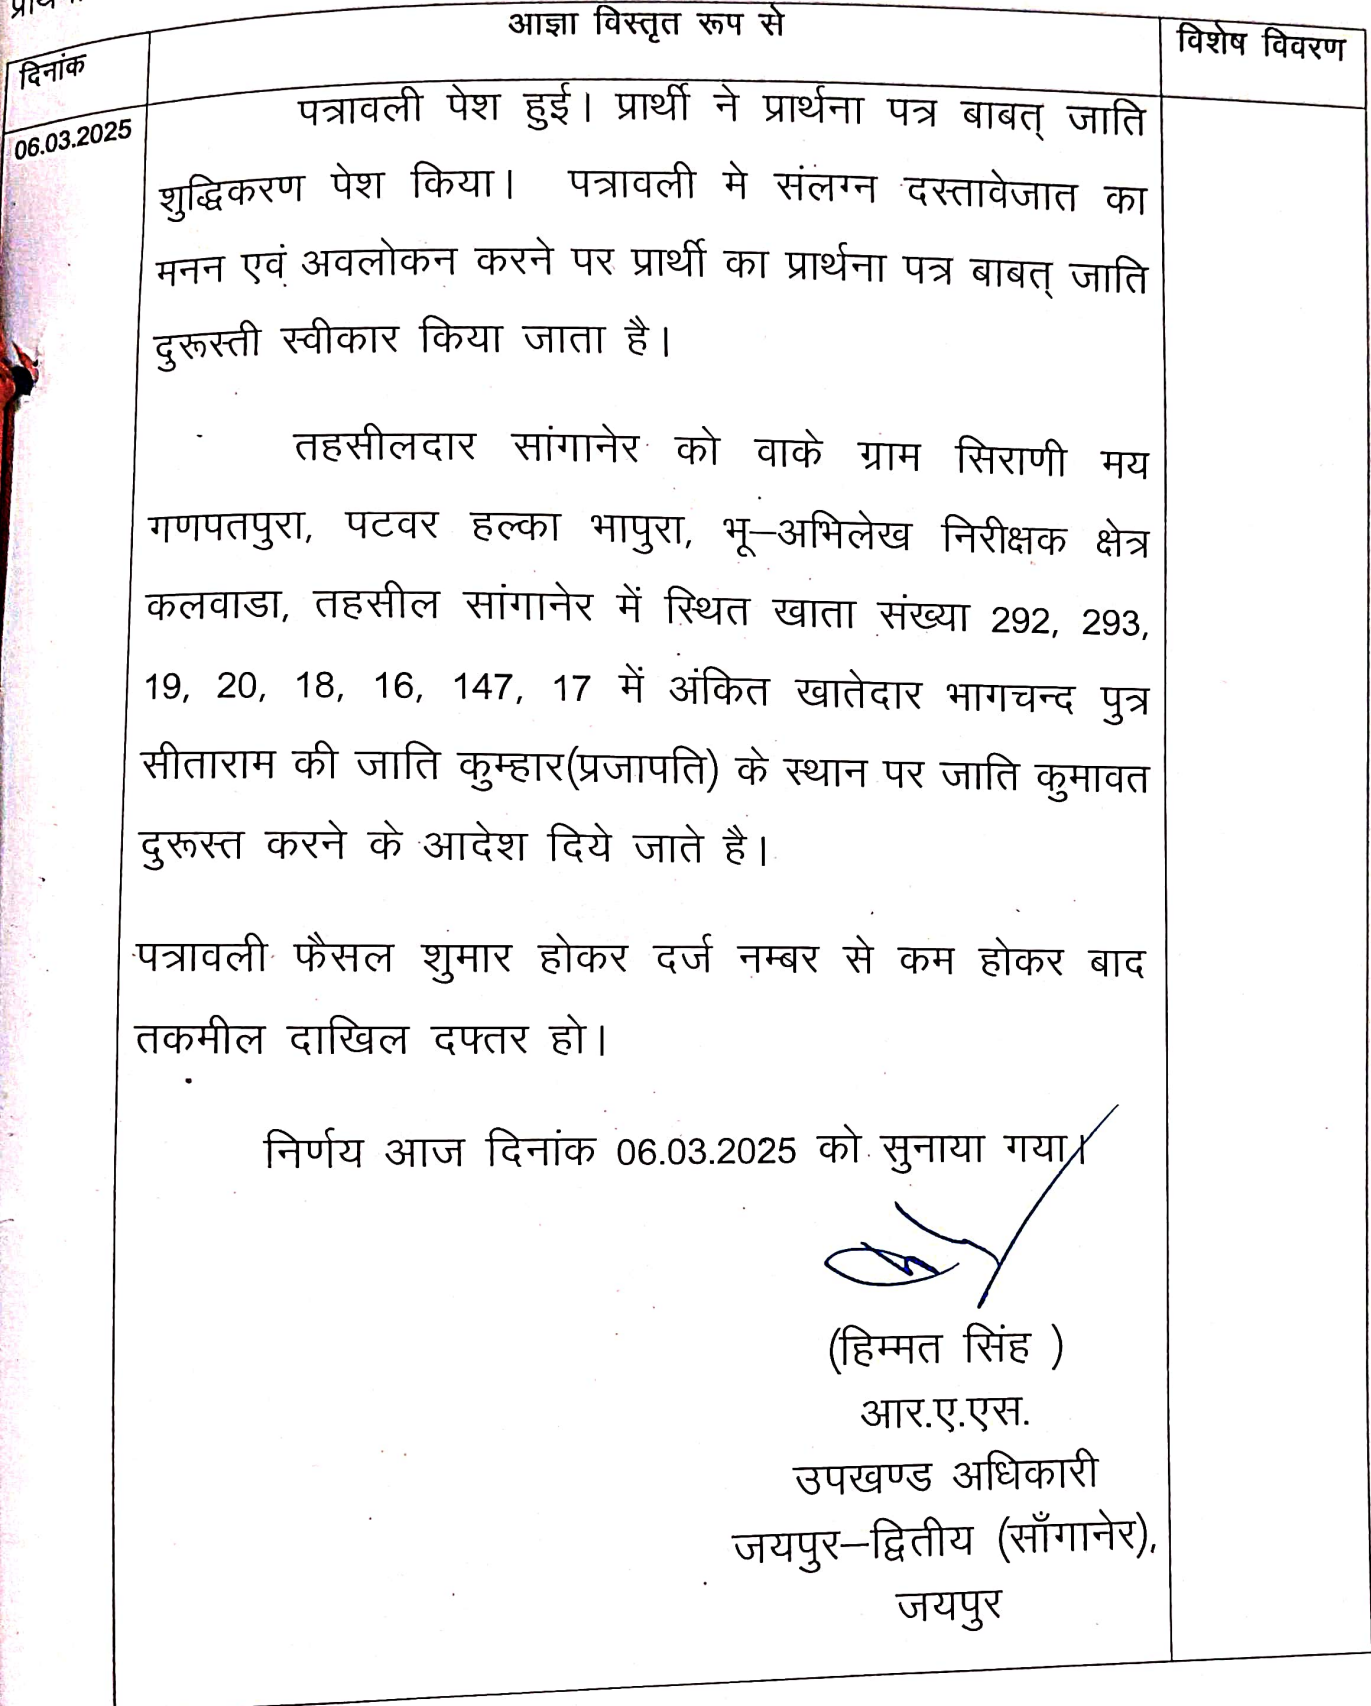 आज्ञा विस्तृत रूप से
विशेष विवरण
दिनांक
06.03.2025
पत्रावली पेश हुई। प्रार्थी ने प्रार्थना पत्र बाबत् जाति
शुद्धिकरण पेश किया। पत्रावली मे संलग्न दस्तावेजात का
मनन एवं अवलोकन करने पर प्रार्थी का प्रार्थना पत्र बाबत् जाति
दुरूस्ती स्वीकार किया जाता है।
तहसीलदार सांगानेर को वाके ग्राम सिराणी मय
गणपतपुरा, पटवर हल्का भापुरा, भू–अभिलेख निरीक्षक क्षेत्र
कलवाडा, तहसील सांगानेर में स्थित खाता संख्या 292, 293,
19, 20, 18, 16, 147, 17 में अंकित खातेदार भागचन्द पुत्र
सीताराम की जाति कुम्हार(प्रजापति) के स्थान पर जाति कुमावत
दुरूस्त करने के आदेश दिये जाते है।
पत्रावली फैसल शुमार होकर दर्ज नम्बर से कम होकर बाद
तकमील दाखिल दफ्तर हो।
निर्णय आज दिनांक 06.03.2025 को सुनाया गया।
(हिम्मत सिंह )
आर.ए.एस.
उपखण्ड अधिकारी
जयपुर–द्वितीय (साँगानेर),
जयपुर